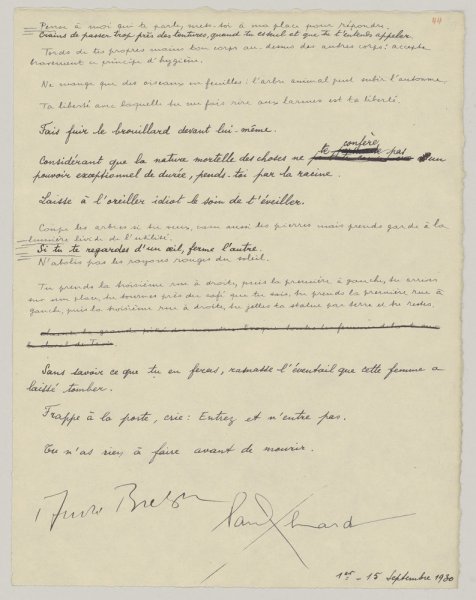 44
Pense à moi qui te parle, mets-toi à ma place pour répondre.
Crains de passer trop près des tentures, quand tu es seul et que tu t'entends appeler.
Tords de tes propres mains ton corps au-dessus des autres corps: accepte
bravement ce principe d'hygiène.
Ne mange que des oiseaux en feuilles: l'arbre animal peut subir l'automne.
Ta liberté avec laquelle tu me fais rire aux larmes est ta liberté.
Fais fuir le brouillard devant lui-même.
Considérant que la nature mortelle des choses ne te confère pas un
pouvoir exceptionnel de durée, pends-toi par la racine.
Laisse à l'oreiller idiot le soin de t'éveiller.
Coupe les arbres si tu veux, casse aussi les pierres mais prends garde à la
lumière livide de l'utilité.
Si tu te regardes d'un œil, ferme l'autre.
N'abolis pas les rayons rouges du soleil.
Tu prends la troisième rue à droite, puis la première à gauche, tu arrives
sur une place, tu tournes près du café que tu sais, tu prends la première rue à
gauche, puis la troisième rue à droite, tu jettes ta statue par terre et tu restes.
Sans savoir ce que tu en feras, ramasse l'éventail que cette femme a
laissé tomber.
Frappe à la porte, crie: Entrez et n'entre pas.
Tu n'as rien à faire avant de mourir.
André Breton Paul Eluard
1er - 15 Septembre 1930